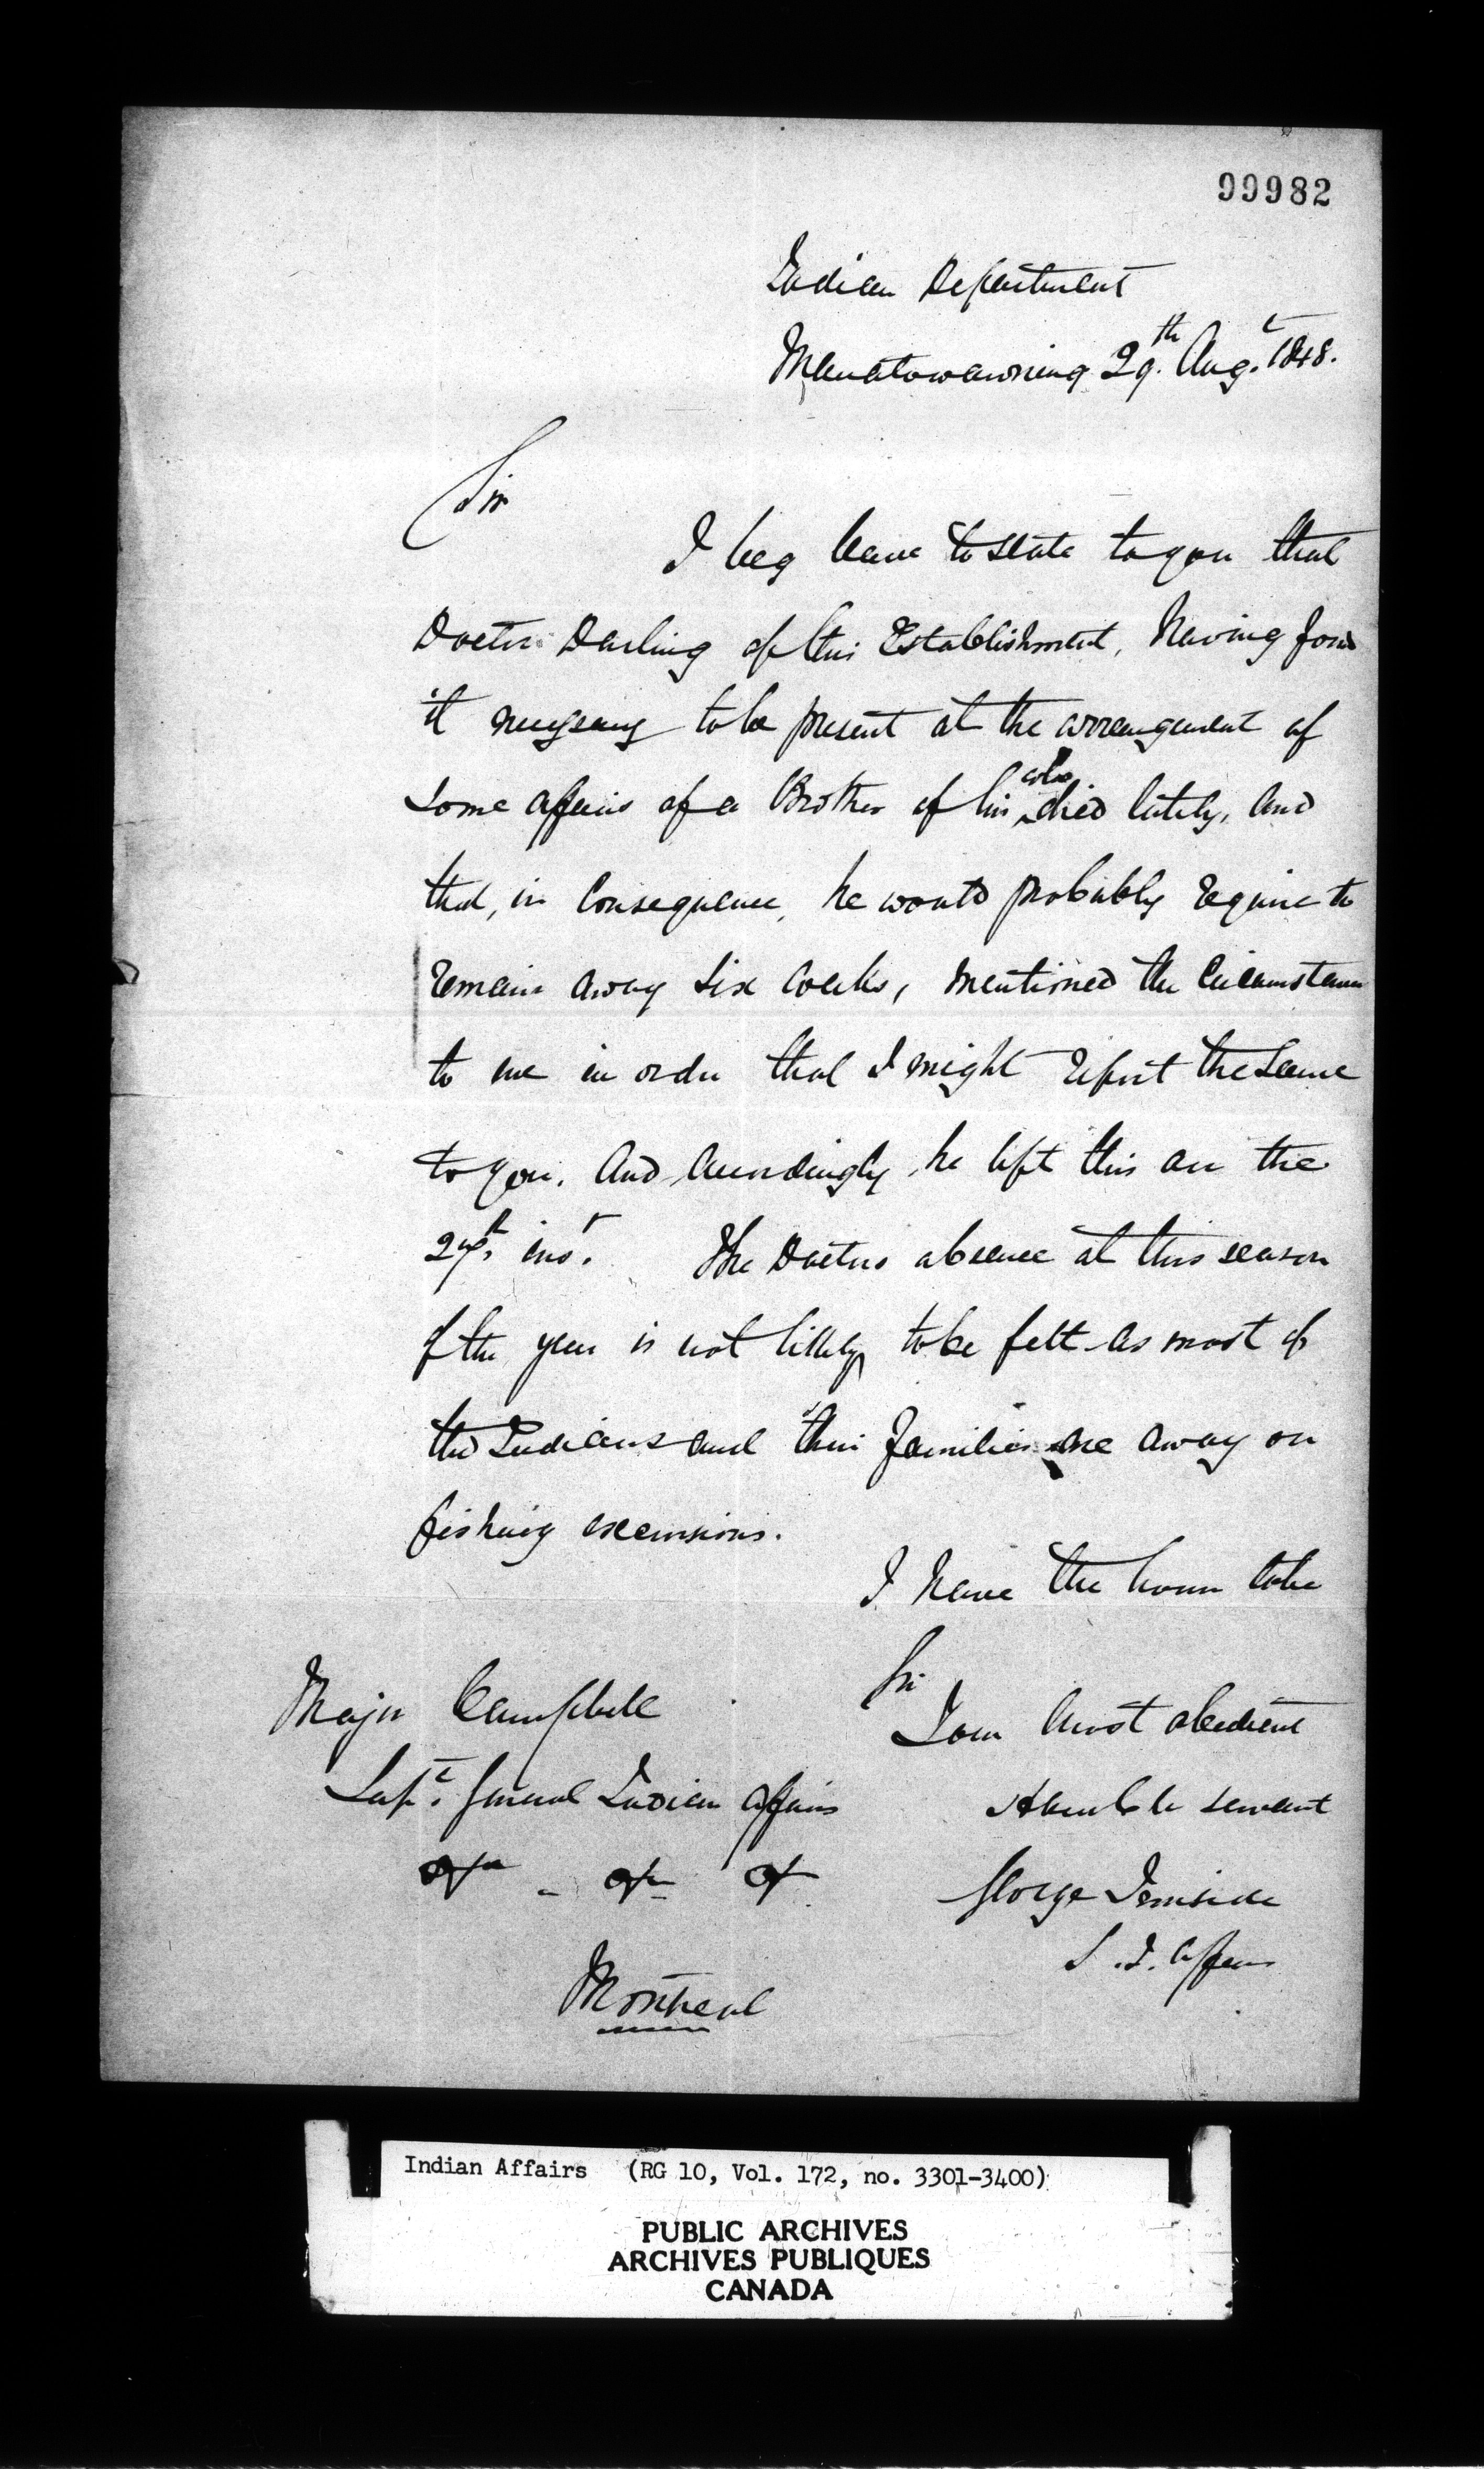 99982
Indian Department
Manatowawning 29th Augt 1848.
Sir
I beg leave to state to you that
Doctor Darling of this Establishment, having found
it necessary to be present at the arrangement of
some affairs of a Brother of his who died lately, and
that, in Consequence, he would probably require to
remain away six weeks, mentioned the Circumstance
to me in order that I might report the same
to you. And accordingly he left this on the
27th inst. The Doctors absence at this season
of the year is not likely to be felt as most of
the Indians and their families are away on
fishing excursions.
I have the honor to be
Sir
Your Most obedient
Humble servant
George Ironside
S. I. Affairs
Major Campbell
Supt. General Indian Affairs
Montreal
Indian Affairs (RG 10, Vol. 172, no. 3301-3400)
PUBLIC ARCHIVES
ARCHIVES PUBLIQUES
CANADA